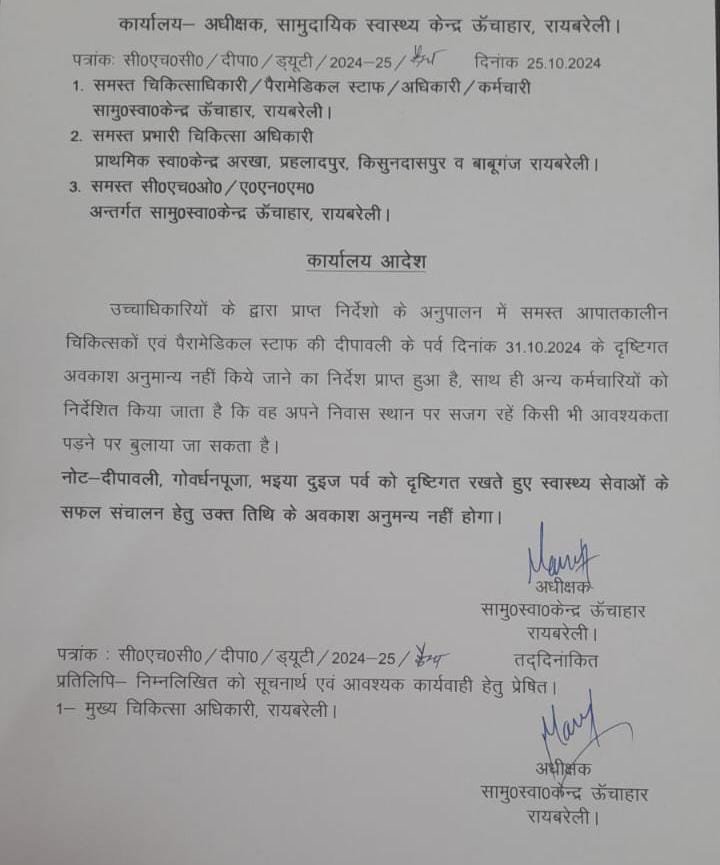 कार्यालय– अधीक्षक, सामुदायिक स्वास्थ्य केन्द्र ऊँचाहार, रायबरेली।
पत्रांकः सी0एच0सी0/दीपा0/ड्यूटी/2024–25/ दिनांक 25.10.2024
1. समस्त चिकित्साधिकारी/पैरामेडिकल स्टाफ/अधिकारी/कर्मचारी
सामु0स्वा0केन्द्र ऊँचाहार, रायबरेली।
2. समस्त प्रभारी चिकित्सा अधिकारी
प्राथमिक स्वा0केन्द्र अरखा, प्रहलादपुर, किसुनदासपुर व बाबूगंज रायबरेली।
3. समस्त सी0एच0ओ0/ए0एन0एम0
अन्तर्गत सामु0स्वा0केन्द्र ऊँचाहार, रायबरेली।
कार्यालय आदेश
उच्चाधिकारियों के द्वारा प्राप्त निर्देशो के अनुपालन में समस्त आपातकालीन
चिकित्सकों एवं पैरामेडिकल स्टाफ की दीपावली के पर्व दिनांक 31.10.2024 के दृष्टिगत
अवकाश अनुमान्य नहीं किये जाने का निर्देश प्राप्त हुआ है, साथ ही अन्य कर्मचारियों को
निर्देशित किया जाता है कि वह अपने निवास स्थान पर सजग रहें किसी भी आवश्यकता
पड़ने पर बुलाया जा सकता है।
नोट–दीपावली, गोवर्धनपूजा, भइया दुइज पर्व को दृष्टिगत रखते हुए स्वास्थ्य सेवाओं के
सफल संचालन हेतु उक्त तिथि के अवकाश अनुमन्य नहीं होगा।
अधीक्षक
सामु0स्वा0केन्द्र ऊँचाहार
रायबरेली।
पत्रांक : सी0एच0सी0/दीपा0/ड्यूटी/2024–25/ तद्दिनांकित
प्रतिलिपि– निम्नलिखित को सूचनार्थ एवं आवश्यक कार्यवाही हेतु प्रेषित।
1– मुख्य चिकित्सा अधिकारी, रायबरेली।
अधीक्षक
सामु0स्वा0केन्द्र ऊँचाहार
रायबरेली।